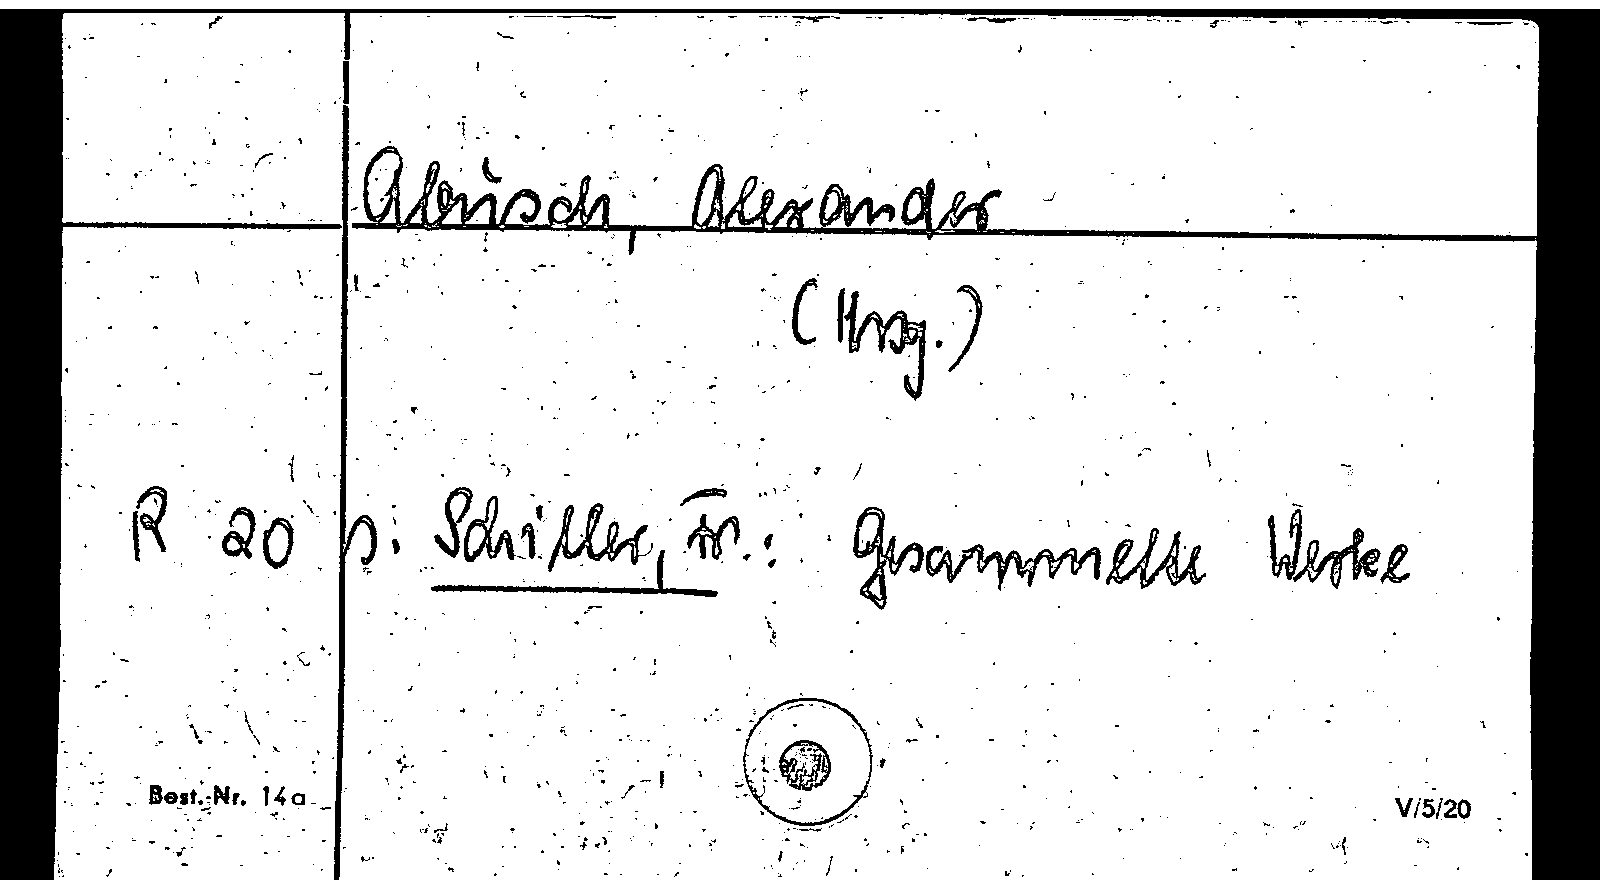 Abusch, Alexander
(Hrsg.)
R 20 s. Schiller, Fr.: Gesammelte Werke
Best.-Nr. 14a
V/5/20